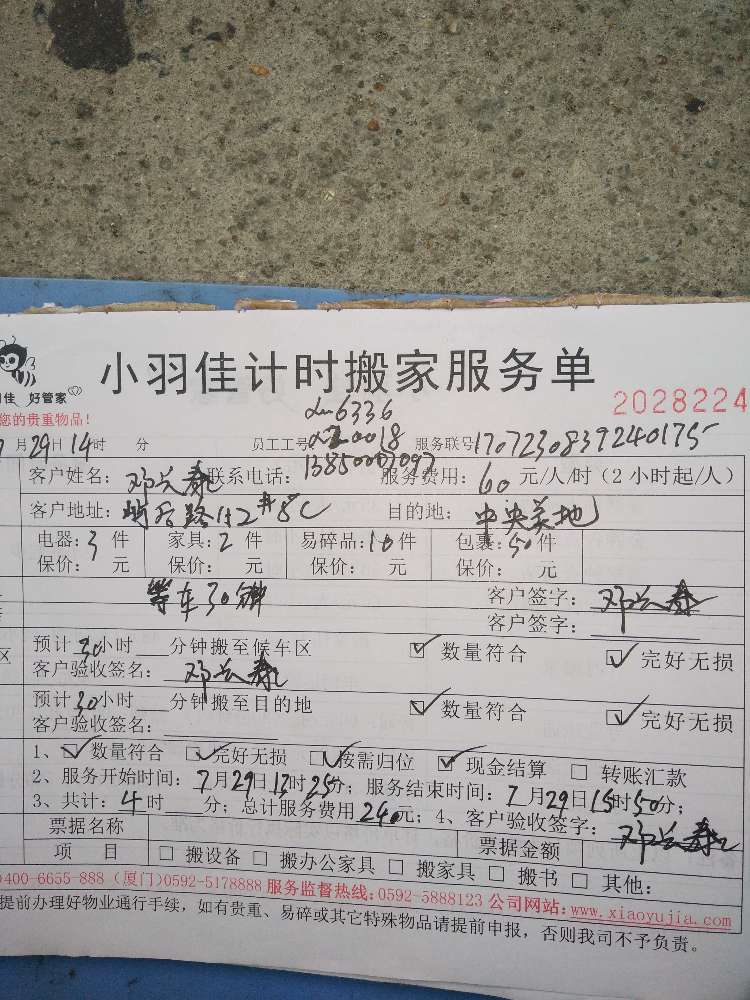 小羽佳计时搬家服务单
佳 好管家
2028224
您的贵重物品!
月29日14时 分 员工工号 6336 0018 服务联号1707230839240175
客户姓名: 邓 联系电话: 13850007097 服务费用: 60 元/人/时(2小时起/人)
客户地址: 后路 2#8C 目的地: 中央美地
电器: 3 件 家具: 2 件 易碎品: 10 件 包裹: 50 件
保价: 元 保价: 元 保价: 元 保价: 元
等车30分钟 客户签字: 邓
客户签字:
区 预计30小时 分钟搬至候车区 ☑ 数量符合 ☑ 完好无损
客户验收签名: 邓
预计30小时 分钟搬至目的地 ☑ 数量符合 ☑ 完好无损
客户验收签名:
1、☑ 数量符合 ☑ 完好无损 ☑ 按需归位 ☑ 现金结算 □ 转账汇款
2、服务开始时间: 7月29日13时25分; 服务结束时间: 7月29日15时50分;
3、共计: 4 时 分; 总计服务费用 240 元; 4、客户验收签字: 邓
票据名称 票据金额
项 目 □ 搬设备 □ 搬办公家具 □ 搬家具 □ 搬书 □ 其他:
400-6655-888 (厦门)0592-5178888 服务监督热线:0592-5888123 公司网站:www.xiaoyujia.com
提前办理好物业通行手续,如有贵重、易碎或其它特殊物品请提前申报,否则我司不予负责。